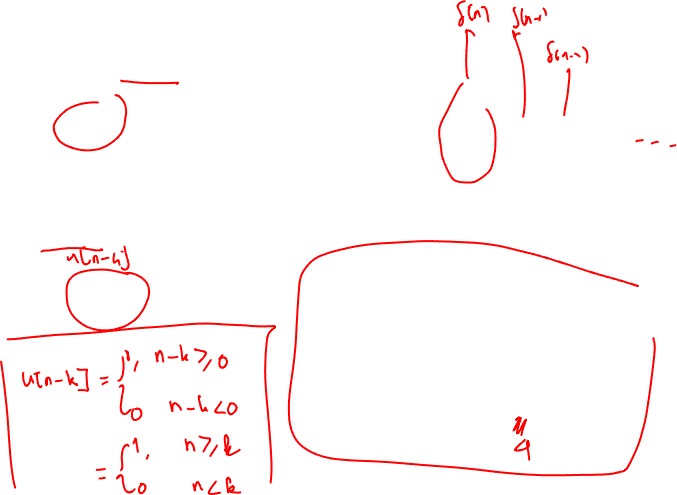 δ(n) δ(n-1)
δ(n-2)
...
u[n-k]
u[n-k] = { 1, n-k ≥, 0
0 n-k < 0
= { 1, n ≥, k
0 n < k